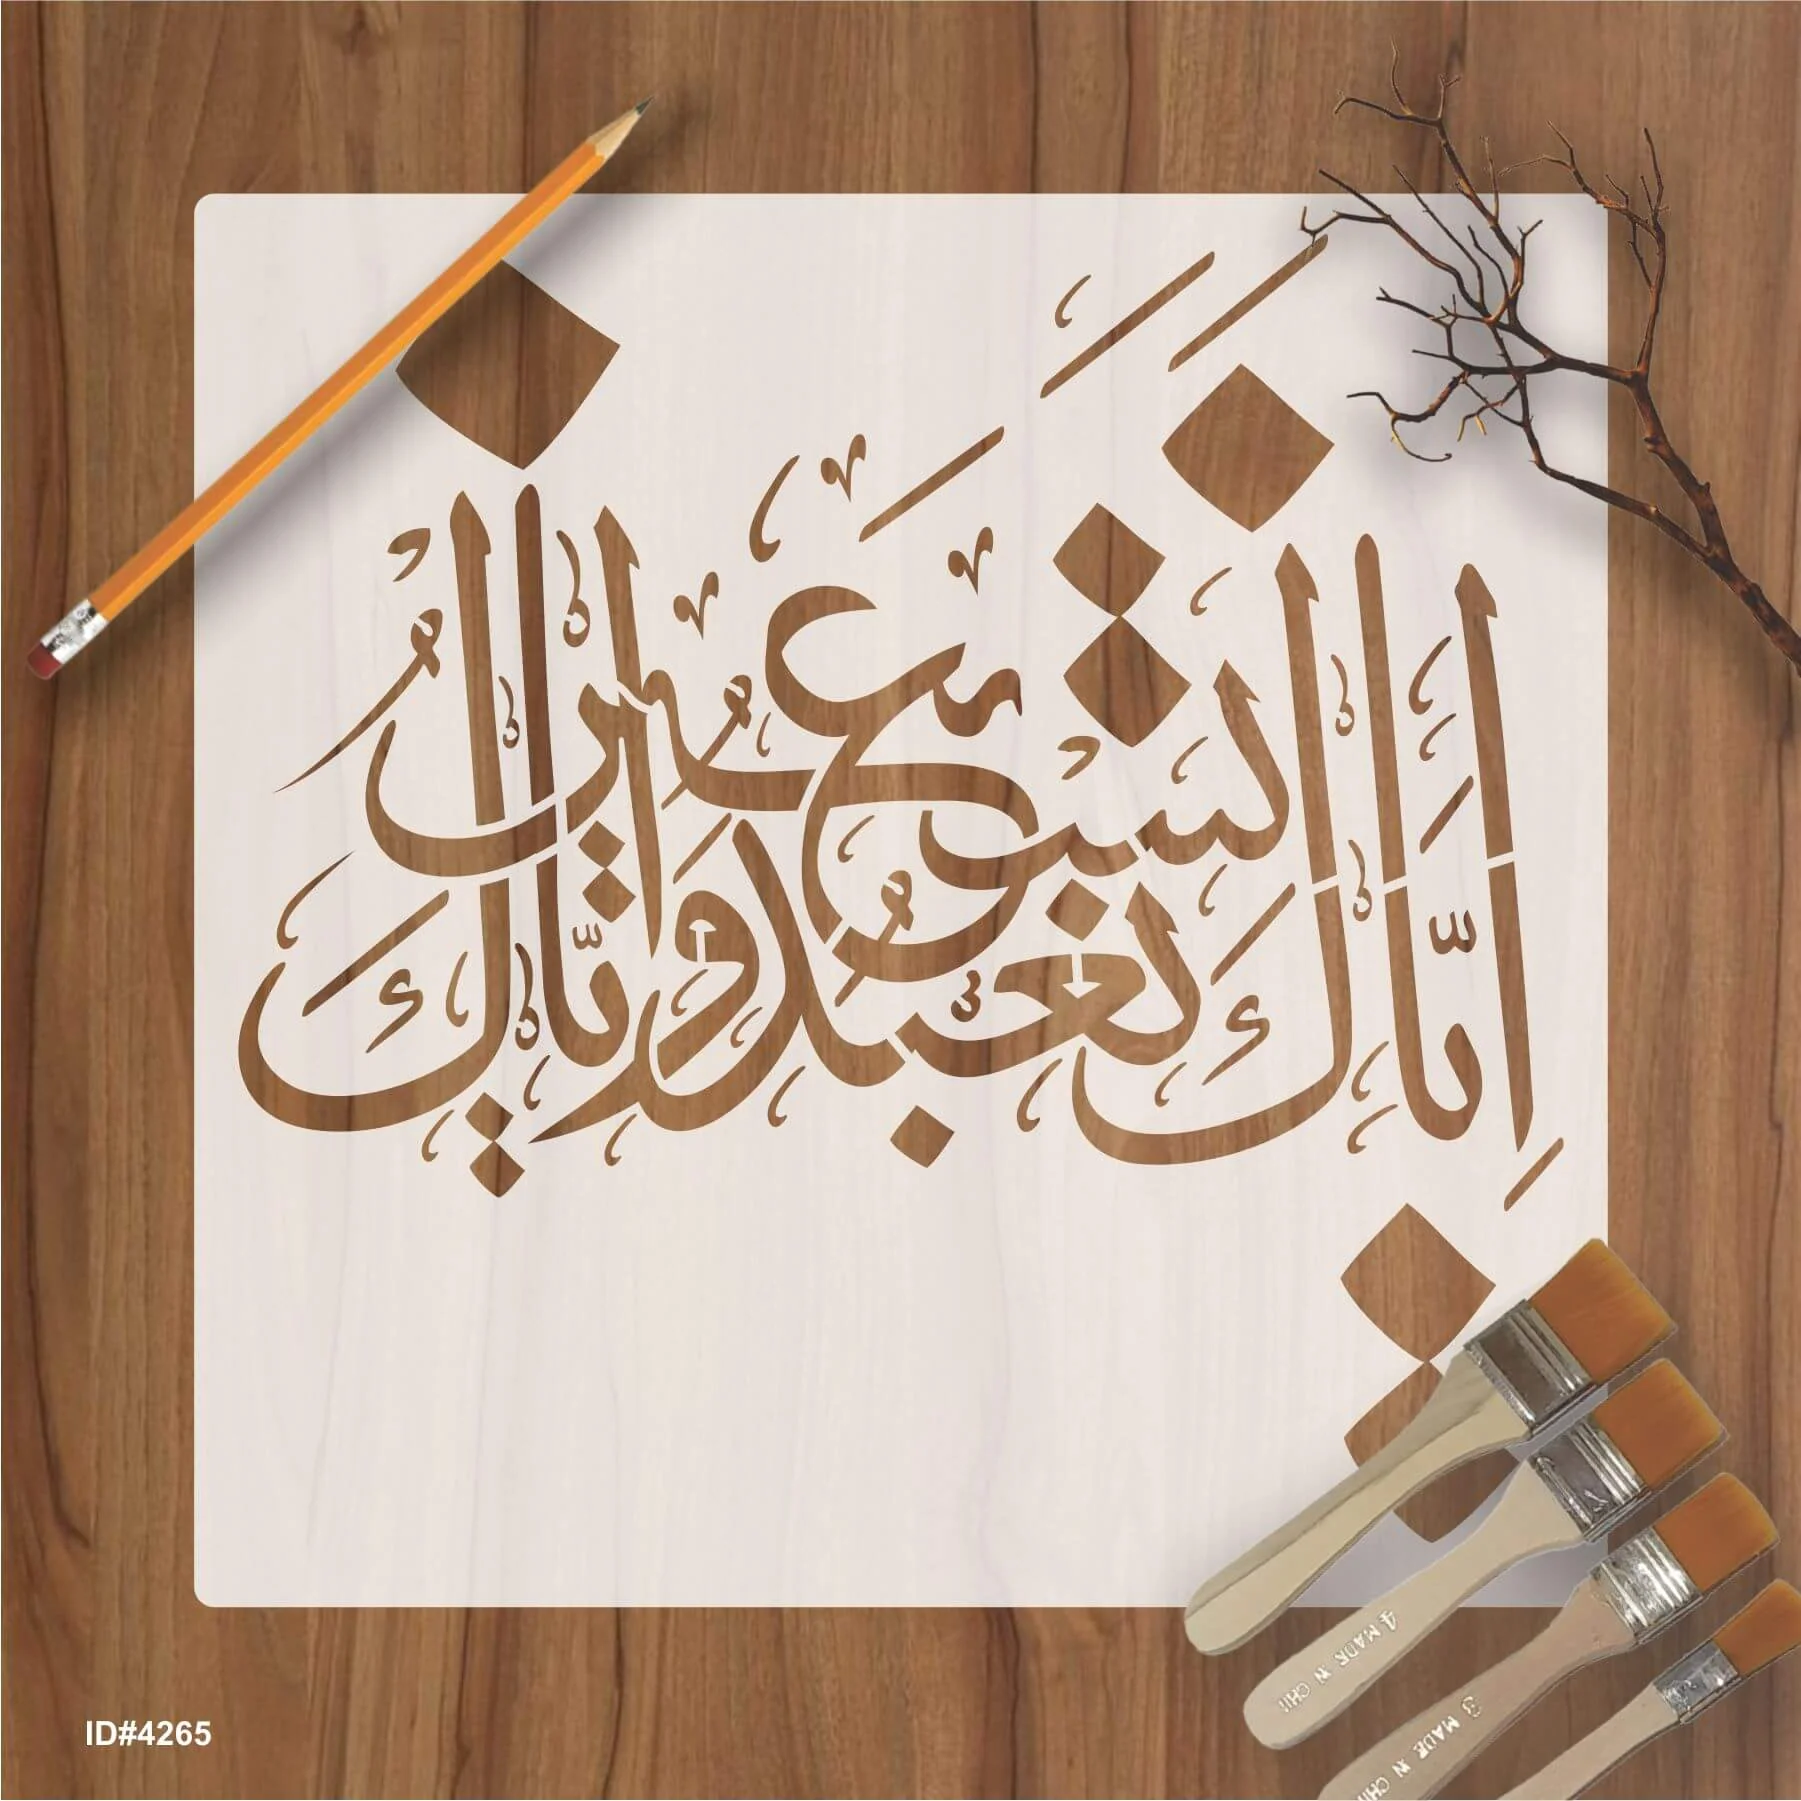 إِيَّاكَ نَعْبُدُ وَإِيَّاكَ نَسْتَعِينُ
ID#4265
4 MADE IN CHI
3 MADE IN CHI